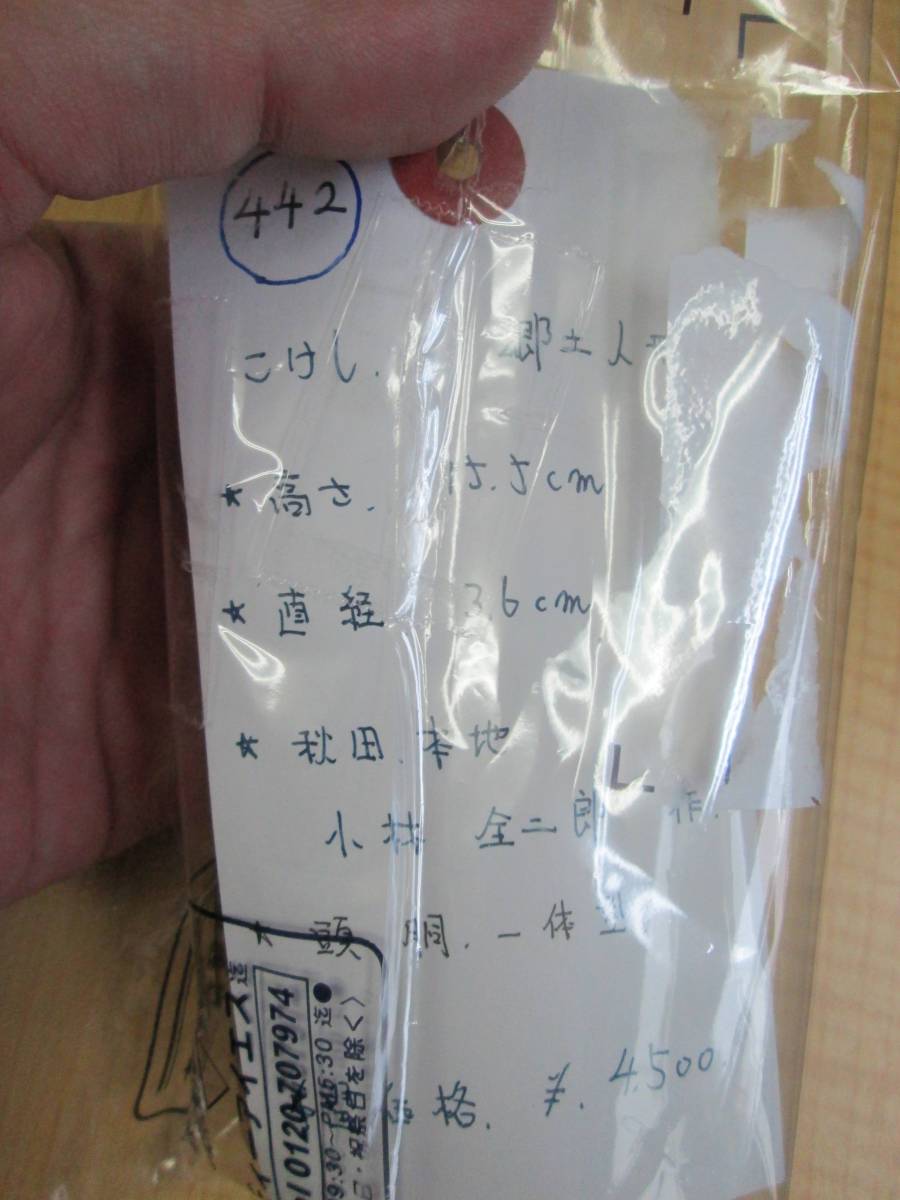 442
こけし. 郷土人
★ 高さ. 15.5cm
★ 直経 3.6cm
★ 秋田.本地
小林 全二郎 作.
★ 頭 胴.一体型
価格. ¥. 4,500
ィーアイエス迄
0120-707974
9:30~PM5:30 迄●
日・祝祭日を除く〉